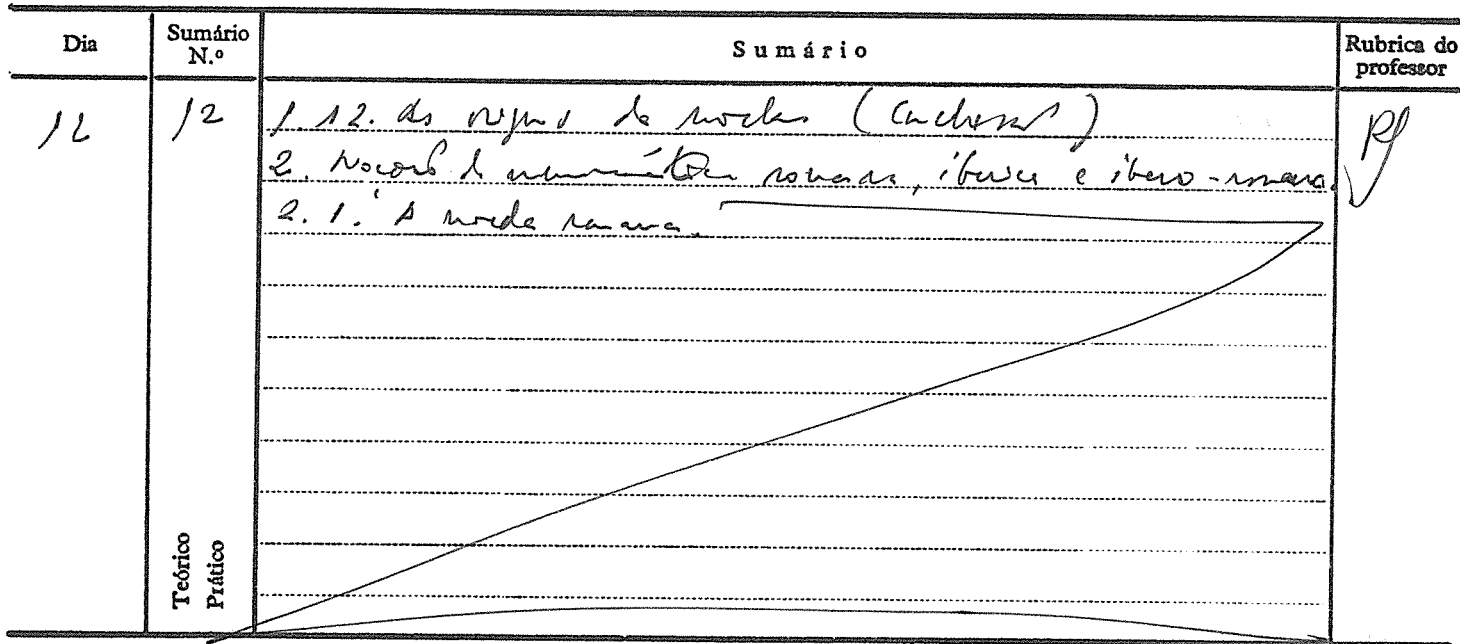 Dia
Sumário N.º
Sumário
Rubrica do professor
12
12
1.12. As origens da moeda (Conclusão)
2. Noções de numismática romana, ibérica e ibero-romana.
2.1. A moeda romana.
Teórico
Prático